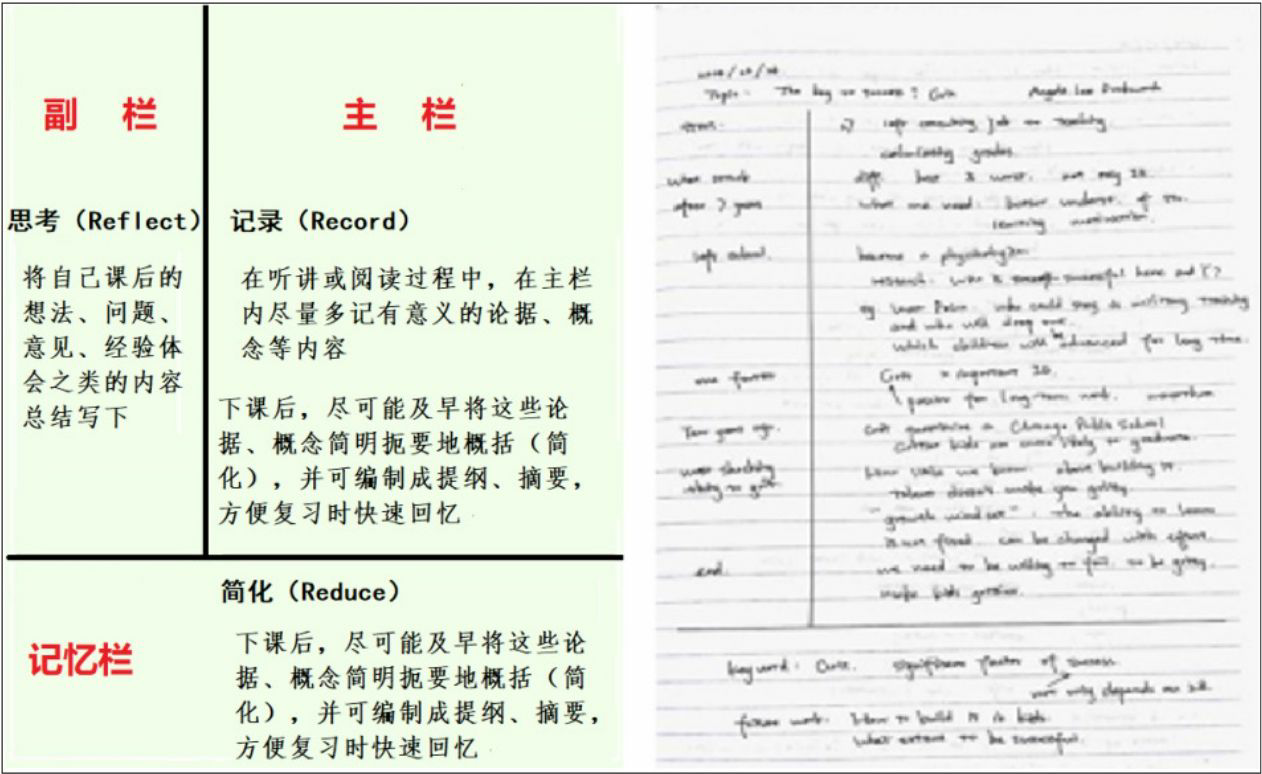 副 栏
主 栏
思考（Reflect）
将自己课后的
想法、问题、
意见、经验体
会之类的内容
总结写下
记录（Record）
在听讲或阅读过程中，在主栏
内尽量多记有意义的论据、概
念等内容
下课后，尽可能及早将这些论
据、概念简明扼要地概括（简
化），并可编制成提纲、摘要，
方便复习时快速回忆
记忆栏
简化（Reduce）
下课后，尽可能及早将这些论
据、概念简明扼要地概括（简
化），并可编制成提纲、摘要，
方便复习时快速回忆
Topic: The key to success? Grit Angela Lee Duckworth
left consulting job to teaching
calculating grades
diff. best & worst. not only IQ
after 7 years
what we need: better of the
learning motivation
left school
become a
research: who is successful here and
eg West Point. who could stay in military training
and who will drop out
which children will be advanced for long time
one factor
Grit
passion for long-term
Grit Chicago Public School
Grittier kids are more likely to graduate
most shocking
about building it
talent doesn't make you gritty
"growth mindset": The ability to learn
is not fixed. can be changed with effort
end
we need to be willing to fail. to be
make kids grittier
key word: Grit. significant factor of success
not only depends on IQ
How to build it in kids
what extent to be successful